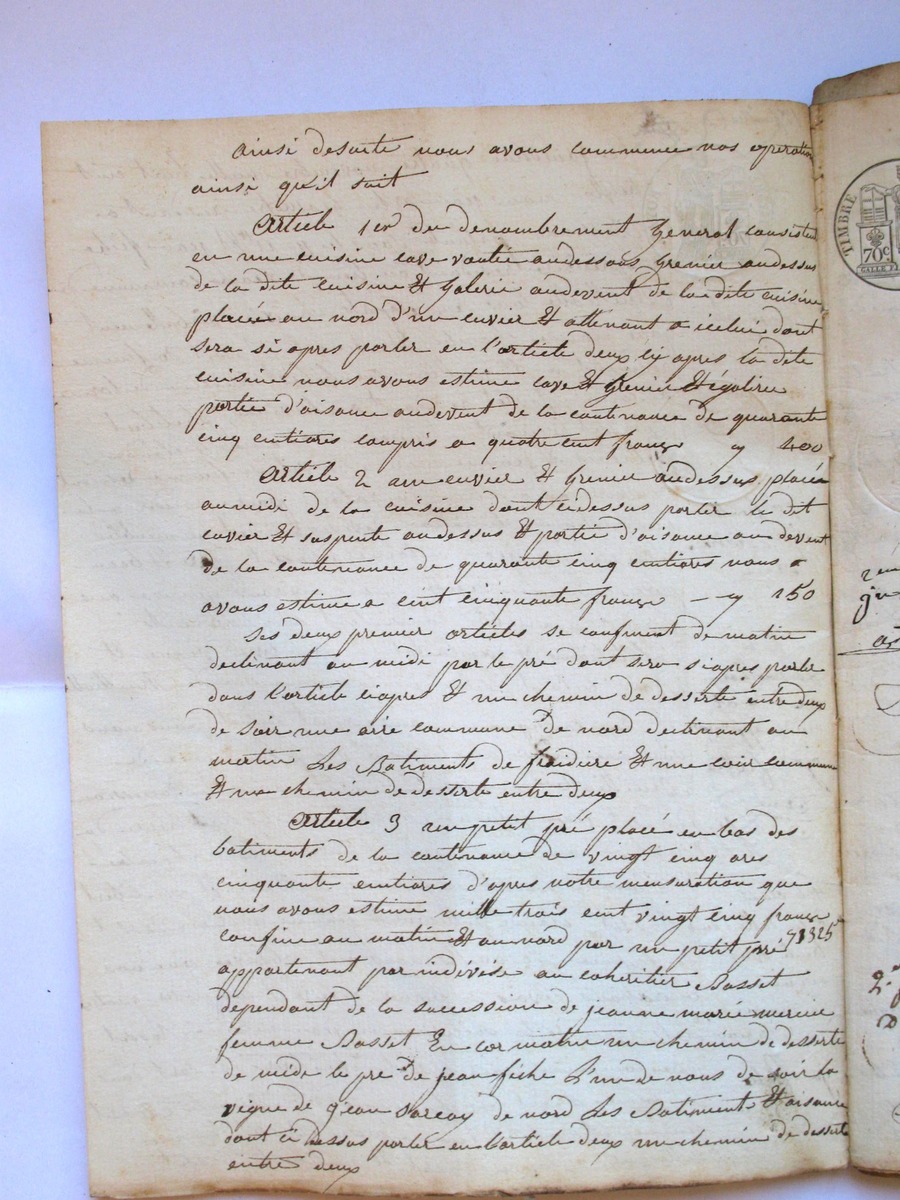 ainsi desuite nous avons commence nos operation
ainsi qu'il suit
Article 1er du denombrement General consistent
en une cuisine cave voutée audessous Grenier audessus
de la dite cuisine et Galerie audevent de la dite cuisine
placée au nord d'un cuvier et attenant a icelui dont
sera si apres parler en l'article deux cy apres la dite
cuisine nous avons estime cave et Grenier et égalerie
partie d'aisance audevent de la continance de quarante
cinq entiares compris a quatre cent franc y 400
Article 2 un cuvier et Grenier audessus placée
aumidi de la cuisine dont cidessus parler le dit
cuvier et suspente audessus et partie d'aisance au devent
de la contenance de quarante cinq entiares nous
avons estime a cent cinquante franc — y 150
Ses deux premier articles se confinent de matin
declinant au midi par le pré dont sera siapres parler
dans l'article ciapres et un chemin de desserte entre deux
de soir une aire commune de nord declinant au
matin les Batiments de et une commune
et un chemin de desserte entre deux
Article 3 un petit pré placé en bas des
batiments de la contenance de vingt cinq ares
cinquante entiares d'apres notre mensuration que
nous avons estime mille trois cent vingt cinq franc
y 1325
confine au matin et au nord par un petit pré
appartenant par indivise au coheritier Basset
dependant de la succession de jeanne marie
femme Basset En cor matin un chemin de desserte
de midi le pré de jean L'un de nous de soir la
vigne de jean de nord les Batiment et aisance
dont ci dessus parler en l'article deux un chemin de desserte
entre deux
TIMBRE
70c